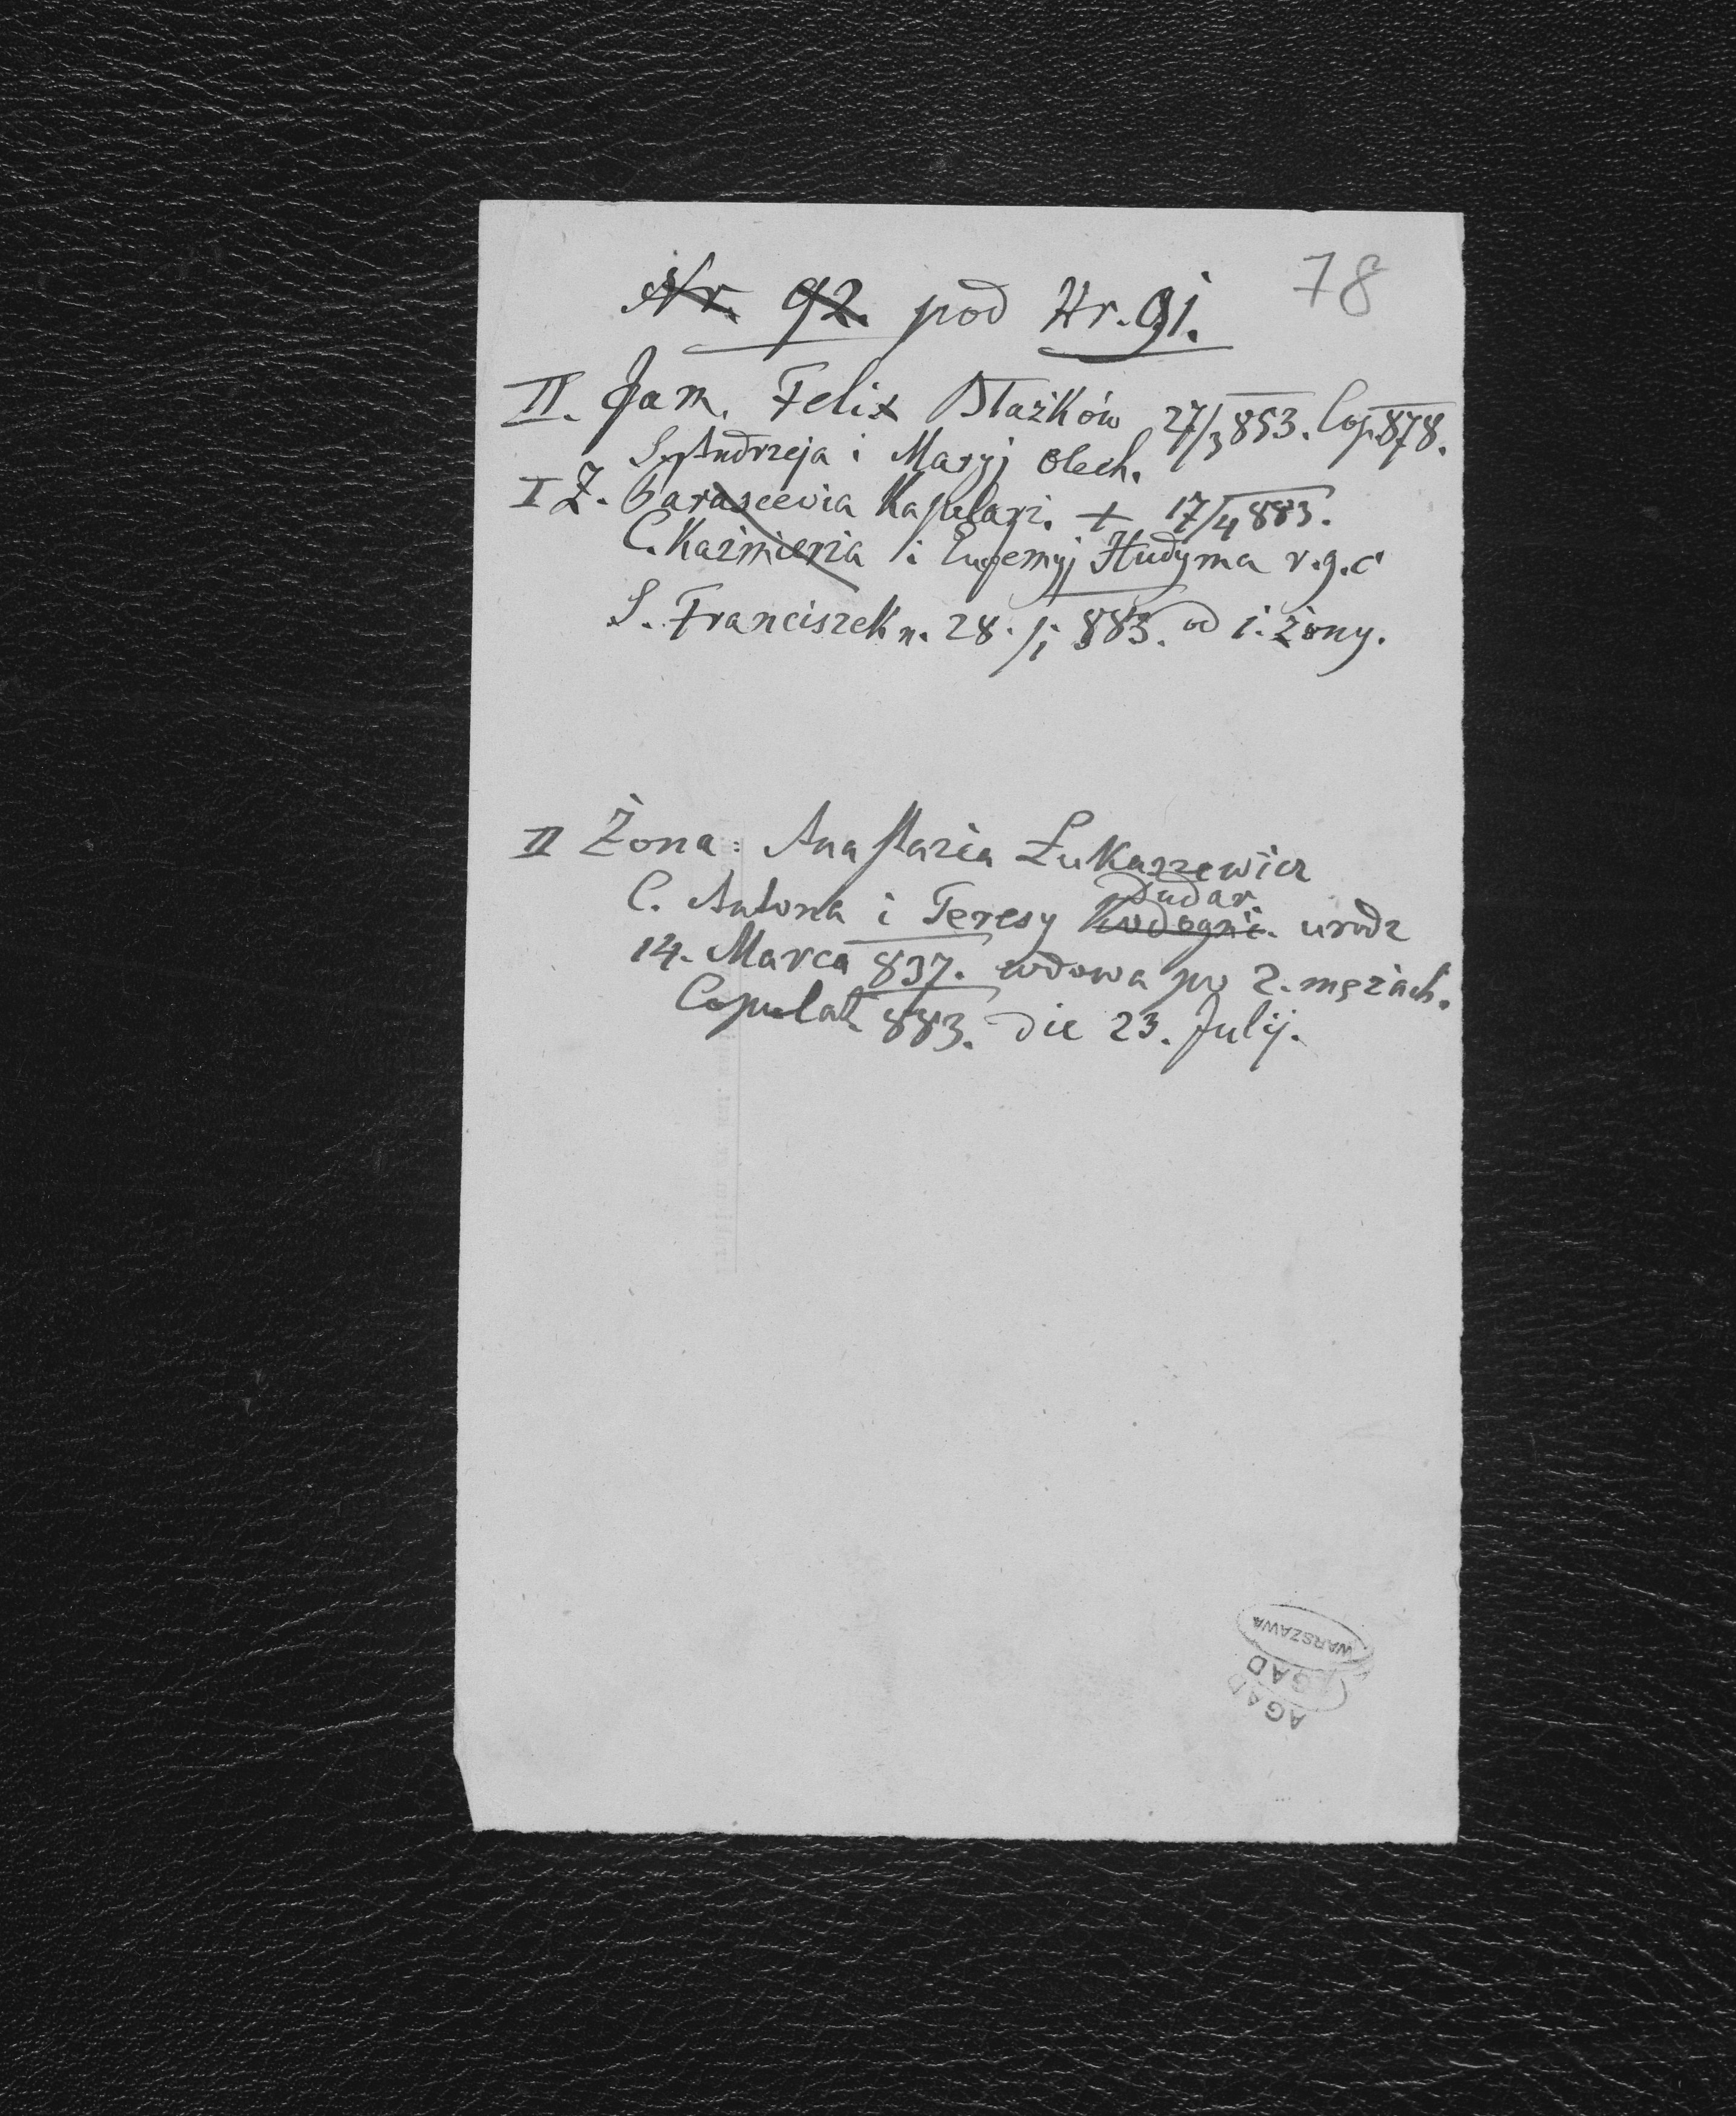 78
Nr. 92. pod Nr. 91.
II. Fam. Felix Błażków 27/3 853. Cop. 878.
S. Andrzeja i Maryj Olech.
I Ż. Parascevia Kapelarz. + 17/4 883.
C. Kaźmierza i Eugemyj Hudyma r. g. c
S. Franciszek n. 28. /1 883. od 1. żony.
II Żona: Anastazia Łukaszewicz
Dudar.
C. Antona i Teresy urodz
14. Marca 837. wdowa po 2. mężach.
Copulat 883. die 23. Julij.
WARSZAWA
AGAD
AGAD